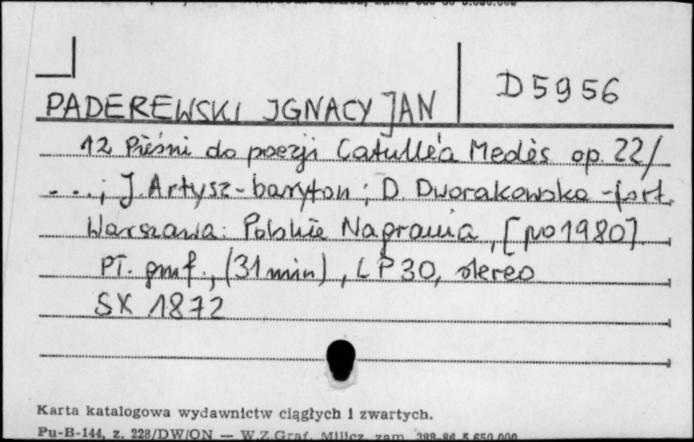 D5956
PADEREWSKI IGNACY JAN
12 Pieśni do poezji Catulle'a Medès op. 22/
...; J. Artysz-baryton; D. Dworakowska-fort.
Warszawa: Polskie Nagrania, [po 1980]
Pł. gmf., (31 min), LP30, stereo
SX 1872
Karta katalogowa wydawnictw ciągłych i zwartych.
Pu-B-144, z. 228/DW/ON — W.Z.Graf. Milicz zam. 398-86 5.650.000